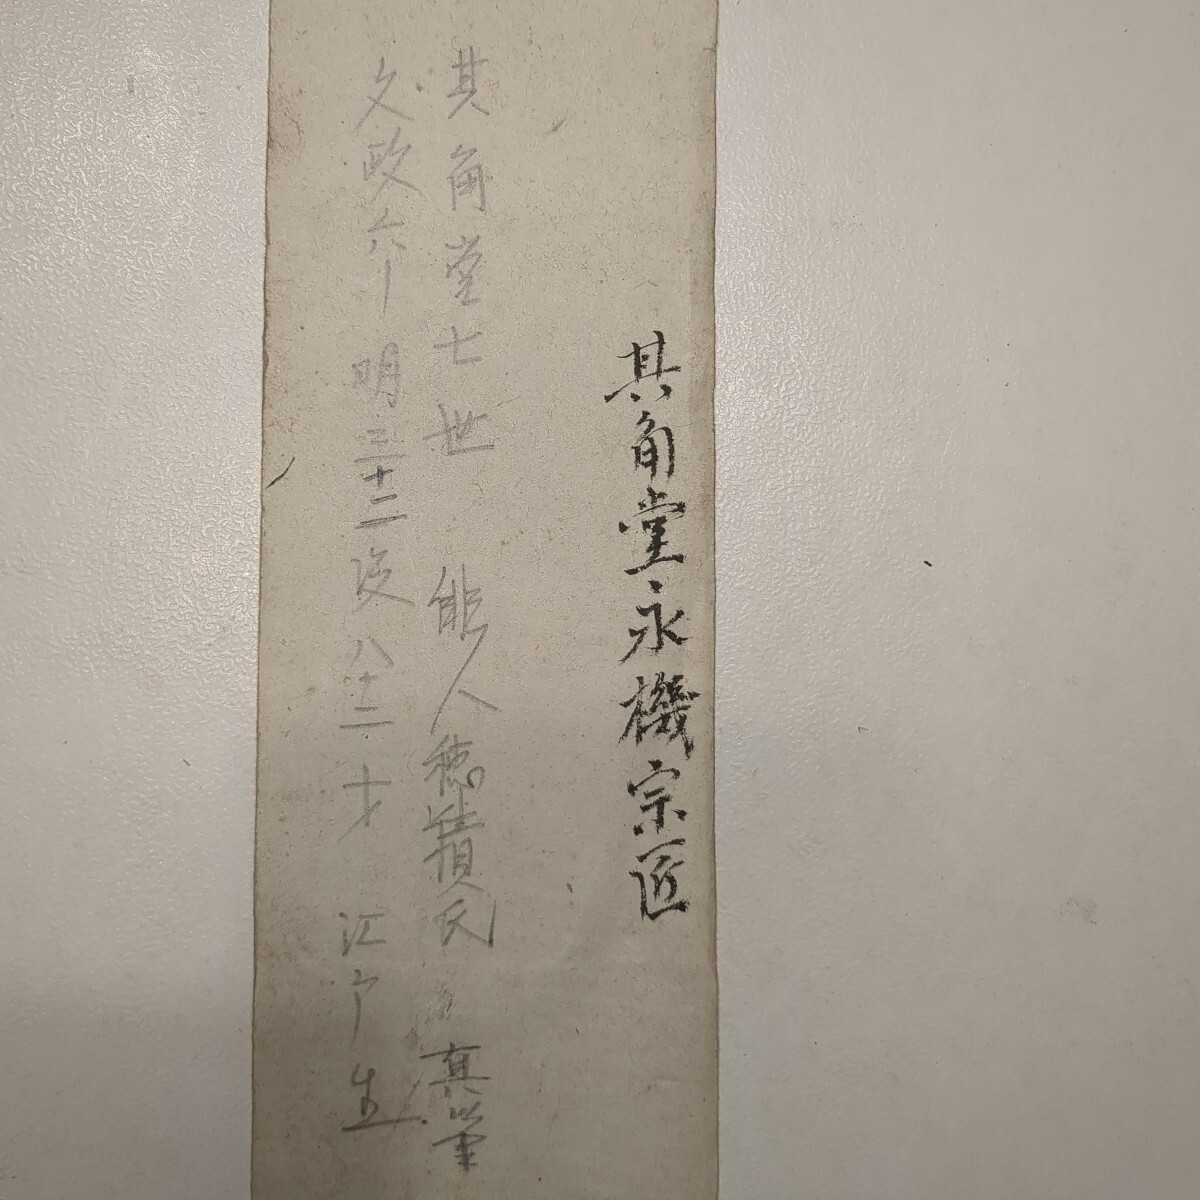 其角堂永機宗匠
其角堂七世 俳人穂積氏 真筆
文政六 明三十二没 八十二才 江戸生